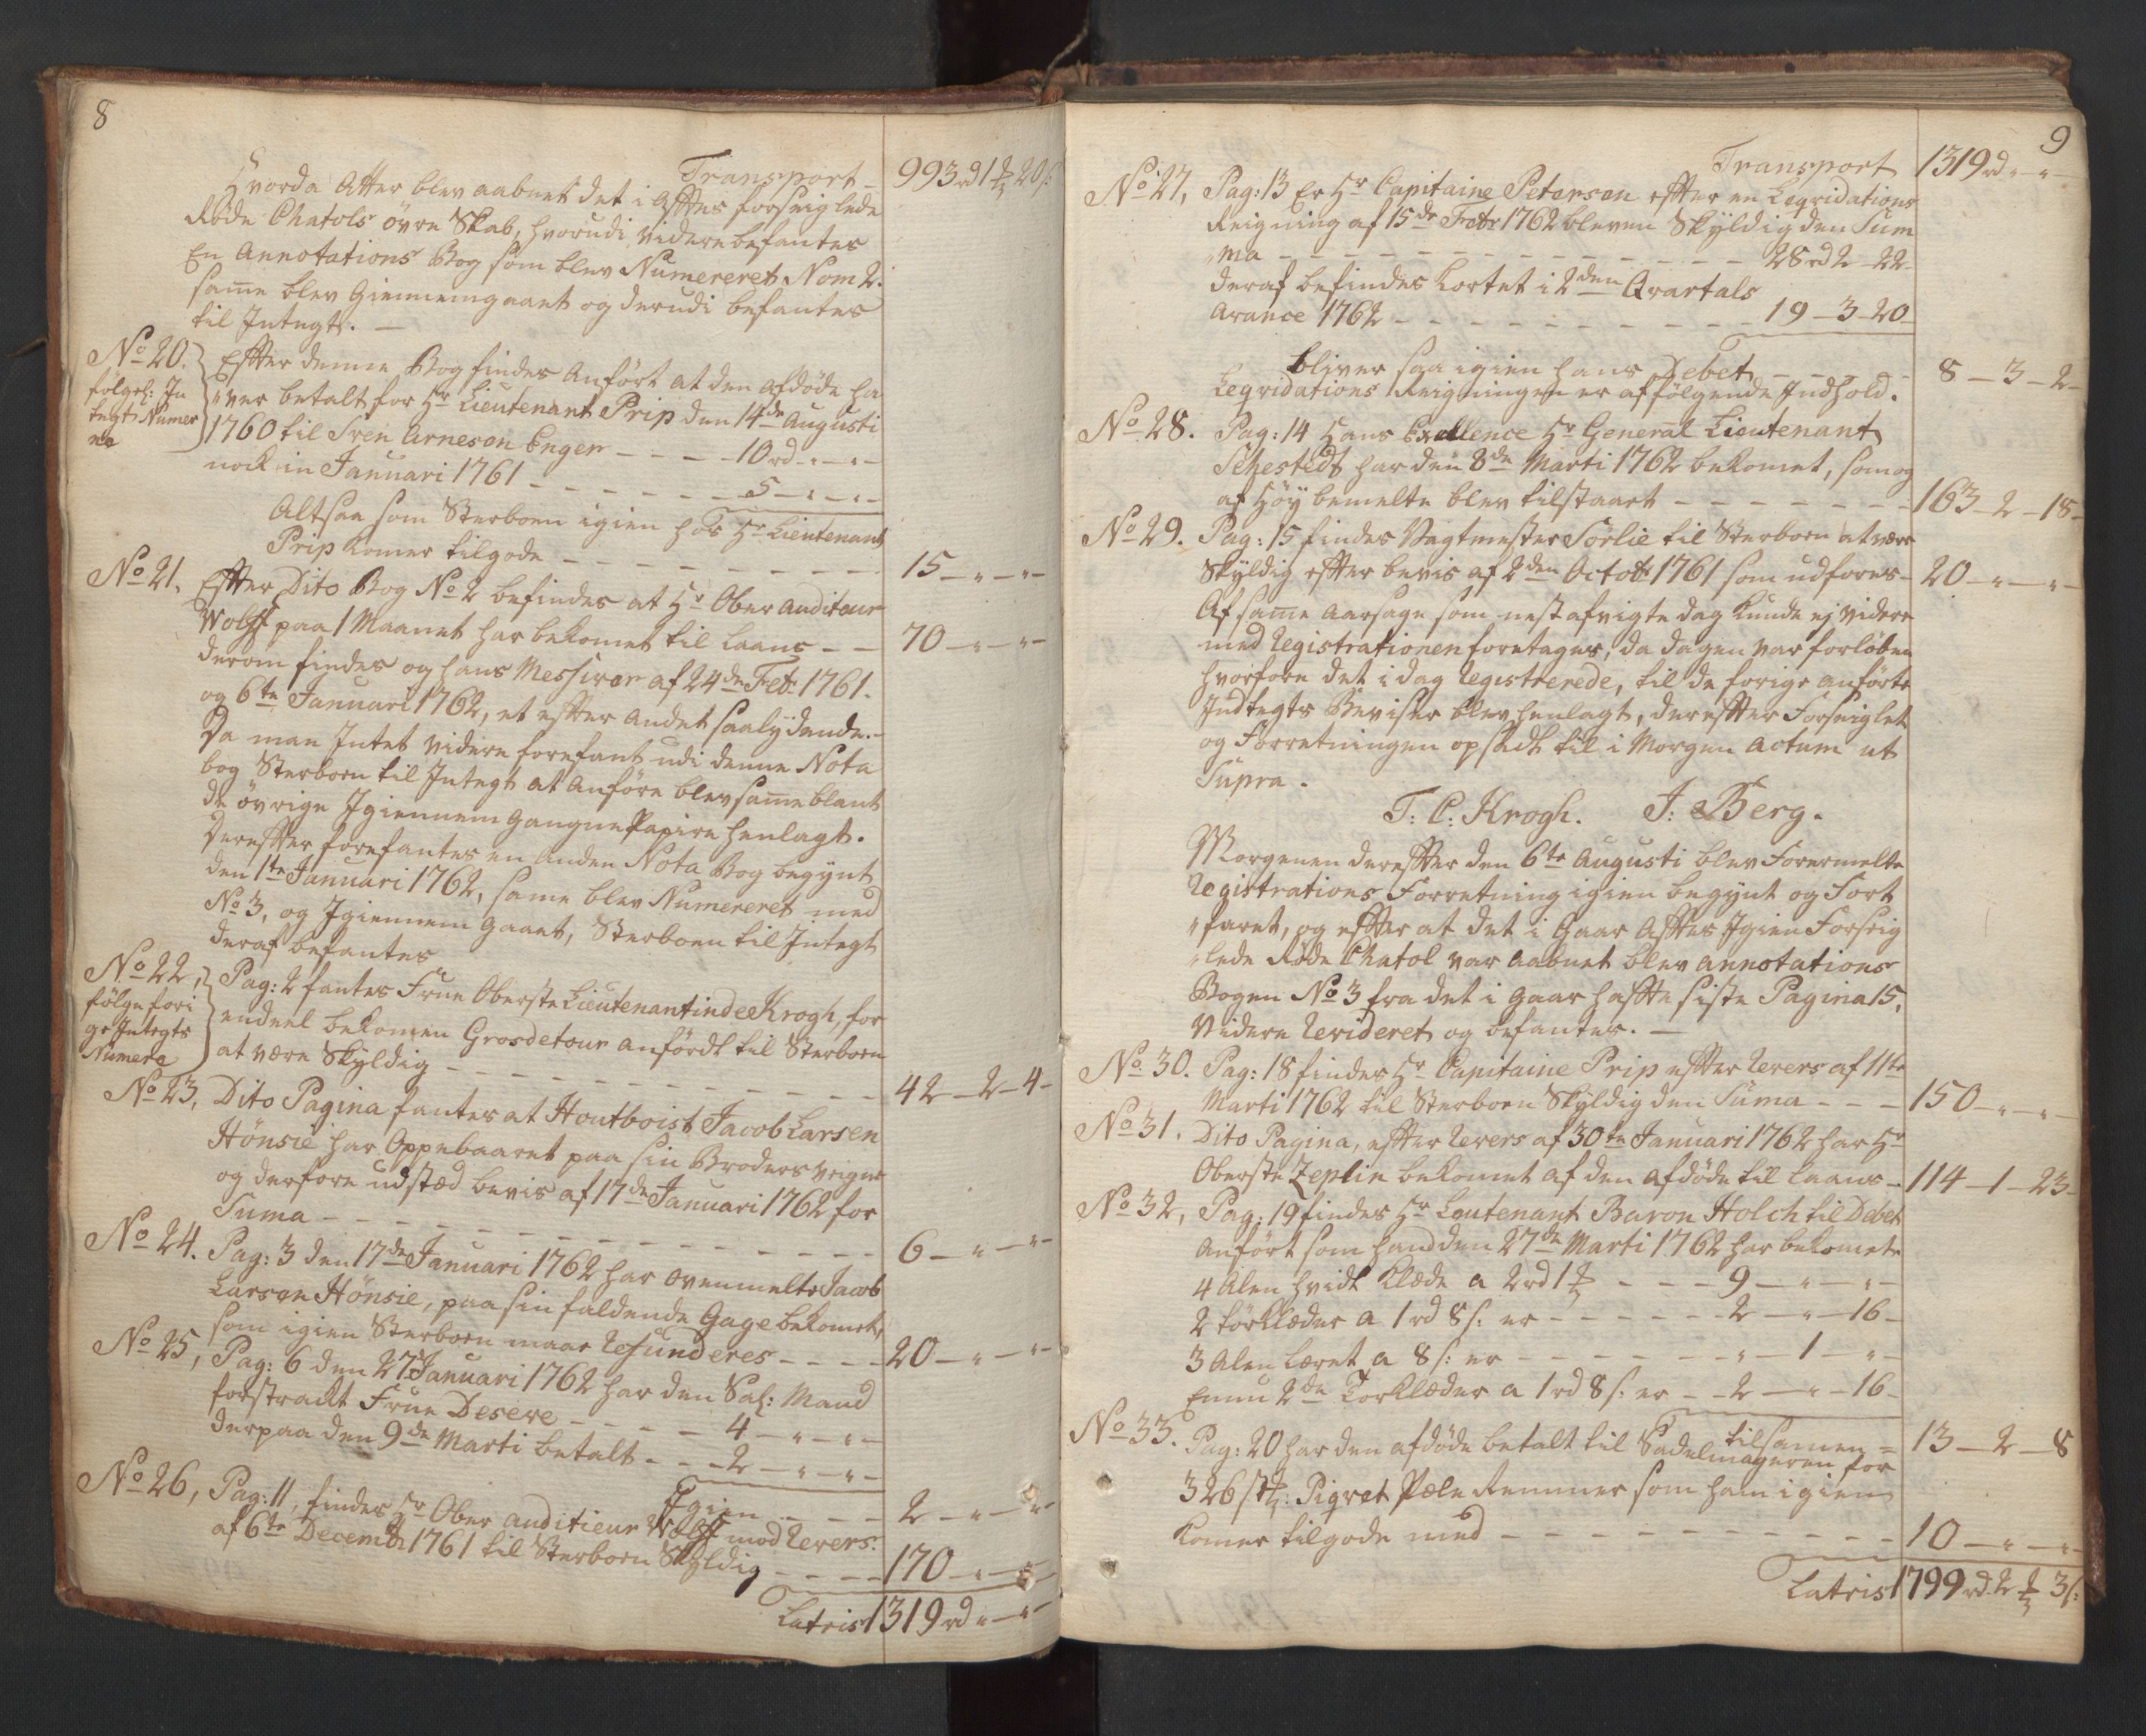 8
Transport – 993 rd 1 ꝑ 20 s:
Hvorda Atter blev aabnet det i Afftes forseiglede
Røde Chatols övre Skab, hvorudi videre befantes
En Annotations Bog som blev Numereret Nom 2.
same blev Giennemgaaet og derudi befantes
til Integt. –
No 20.
følgel: In
tegt Numer
ne
Effter denne Bog findes Anført at den afdöde ha
"ver betalt for Hr Lieutenant Prip den 14de Augusti
1760 til Sven Arnesen Enger – – – – 10 rd – " – " –
nock in Januari 1761 – – – – – – – 5 – " – " –
Altsaa som Sterboen igien hos Hr Lieutenant
Prip komer tilgode – – – – – – – – – 15 – " – " –
No 21.
Effter Dito Bog No 2 befindes at Hr Ober Auditeur
Wolff paa 1 Maanet har bekomet til Laans – – 70 – " – " –
derom findes og hans Messiver af 24de Febr: 1761.
og 6te Januari 1762, et effter Andet saalydende. –
Da man Intet videre forefant udi denne Nota
bog Sterboen til Integt at Anföre blev same blant
de övrige Igiennem Gangne Papire henlagt.
Dereffter forefantes en Anden Nota Bog begynt
den 1te Januari 1762, same blev Numereret med
No 3, og Igiennem Gaaet, Sterboen til Integt
deraf befantes
No 22,
fölge fori
ge Integts
Numera
Pag: 2 fantes Frue Oberste Lieutenantinde Krogh, for
endeel bekomen Grosdetour anfördt til Sterboen
at være Skyldig – – – – – – – – – – – 42 – 2 – 4 –
No 23,
Dito Pagina fantes at Houtboist Jacob Larsen
Hönsie har Oppebaaret paa sin Broders veigne
og derfore udstæd bevis af 17de Januari 1762 for
Suma – – – – – – – – – – – – – 6 – " – " –
No 24.
Pag: 3 den 17de Januari 1762 har ovenmelte Jacob
Larsen Hönsie, paa sin faldende Gage bekomet,
som igien Sterboen maae Refunderes – – – – 20 – " – " –
No 25,
Pag: 6 den 27 Januari 1762 har den Sal: Mand
forstrackt Frue Desere – – – – – 4 – " – " –
derpaa den 9de Marti betalt – – – 2 – " – " –
Igien – – – – 2 – " – " –
No 26,
Pag: 11, findes Hr Ober Auditieur Wolff mod Revers.
af 6te Decembr 1761 til Sterboen Skyldig – – – – 170 – " – " –
Latris 1319 rd " – " –
9
Transport 1319 rd " – " –
No 27,
Pag: 13 Er Hr Capitaine Petersen effter en Leqvidations
Reigning af 15de Febr 1762 bleven Skyldig den Sum
"ma – – – – – – – – – – – – – 28 rd 2 – 22 –
deraf befindes kortet i 2den Qvartals
Avance 1762 – – – – – – – – – – – 19 – 3 – 20 –
bliver saa igien hans Debet – – – – 8 – 3 – 2 –
Leqvidations Reigningen er af fölgende Indhold.
No 28.
Pag: 14 Hans Exellence Hr General Lieutenant
Sehestedt har den 8de Marti 1762 bekomet, som og
af Höy bemelte blev tilstaaet – – – – – – – 163 – 2 – 18 –
No 29.
Pag: 15 findes Vagtmester Sörlie til Sterboen at være
Skyldig effter bevis af 2den Octobr 1761 som udföres – 20 – " – " –
Af same Aarsage som nest afvigte dag kunde ej videre
med Registrationen foretages, da dagen var forlöben
hvorfore det i dag Registrerede, til de forige anförte
Indtegts Beviser blev henlagt, dereffter Forseiglet
og Forretningen opsadt til i Morgen Actum ut
Supra.
T: C: Krogh. J: Berg.
Morgenen dereffter den 6te Augusti blev Forermelte
Registrations Forretning igien begynt og Fort
"faret, og effter at det i Gaar Afftes Igien Forseig
"lede Røde Chatol var Aabnet blev annotations
Bogen No 3 fra det i Gaar haffte siste Pagina 15,
Videre Revideret og befantes. –
No 30.
Pag: 18 findes Hr Capitaine Prip effter Revers af 11te
Marti 1762 til Sterboen Skyldig den Suma – – – 150 – " – " –
No 31.
Dito Pagina, effter Revers af 30te Januari 1762 har Hr
Oberste Zeplin bekomet af den afdöde til Laans – 114 – 1 – 23 –
No 32,
Pag: 19 findes Hr Leutenant Baron Holch til Debet
Anfört som hand den 27de Marti 1762 har bekomet
4 Alen hvidt Klæde a 2 rd 1 ꝑ – – – 9 – " – " –
2 törklæder a 1 rd 8 s: er – – – – – – 2 – " – 16 –
3 Alen Læret a 8 s: er – – – – – – – " – 1 – " –
Ennu 2de Torklæder a 1 rd 8 s: er – – 2 – " – 16 –
tilsamen = 13 – 2 – 8
No 33.
Pag: 20 har den afdöde betalt til Sadelmageren for
326 stk: Piqvet Pæle Remmer som ham igien
komer tilgode med – – – – – – – – – – – 10 – " – " –
Latris 1799 rd 2 ꝑ 3 s: